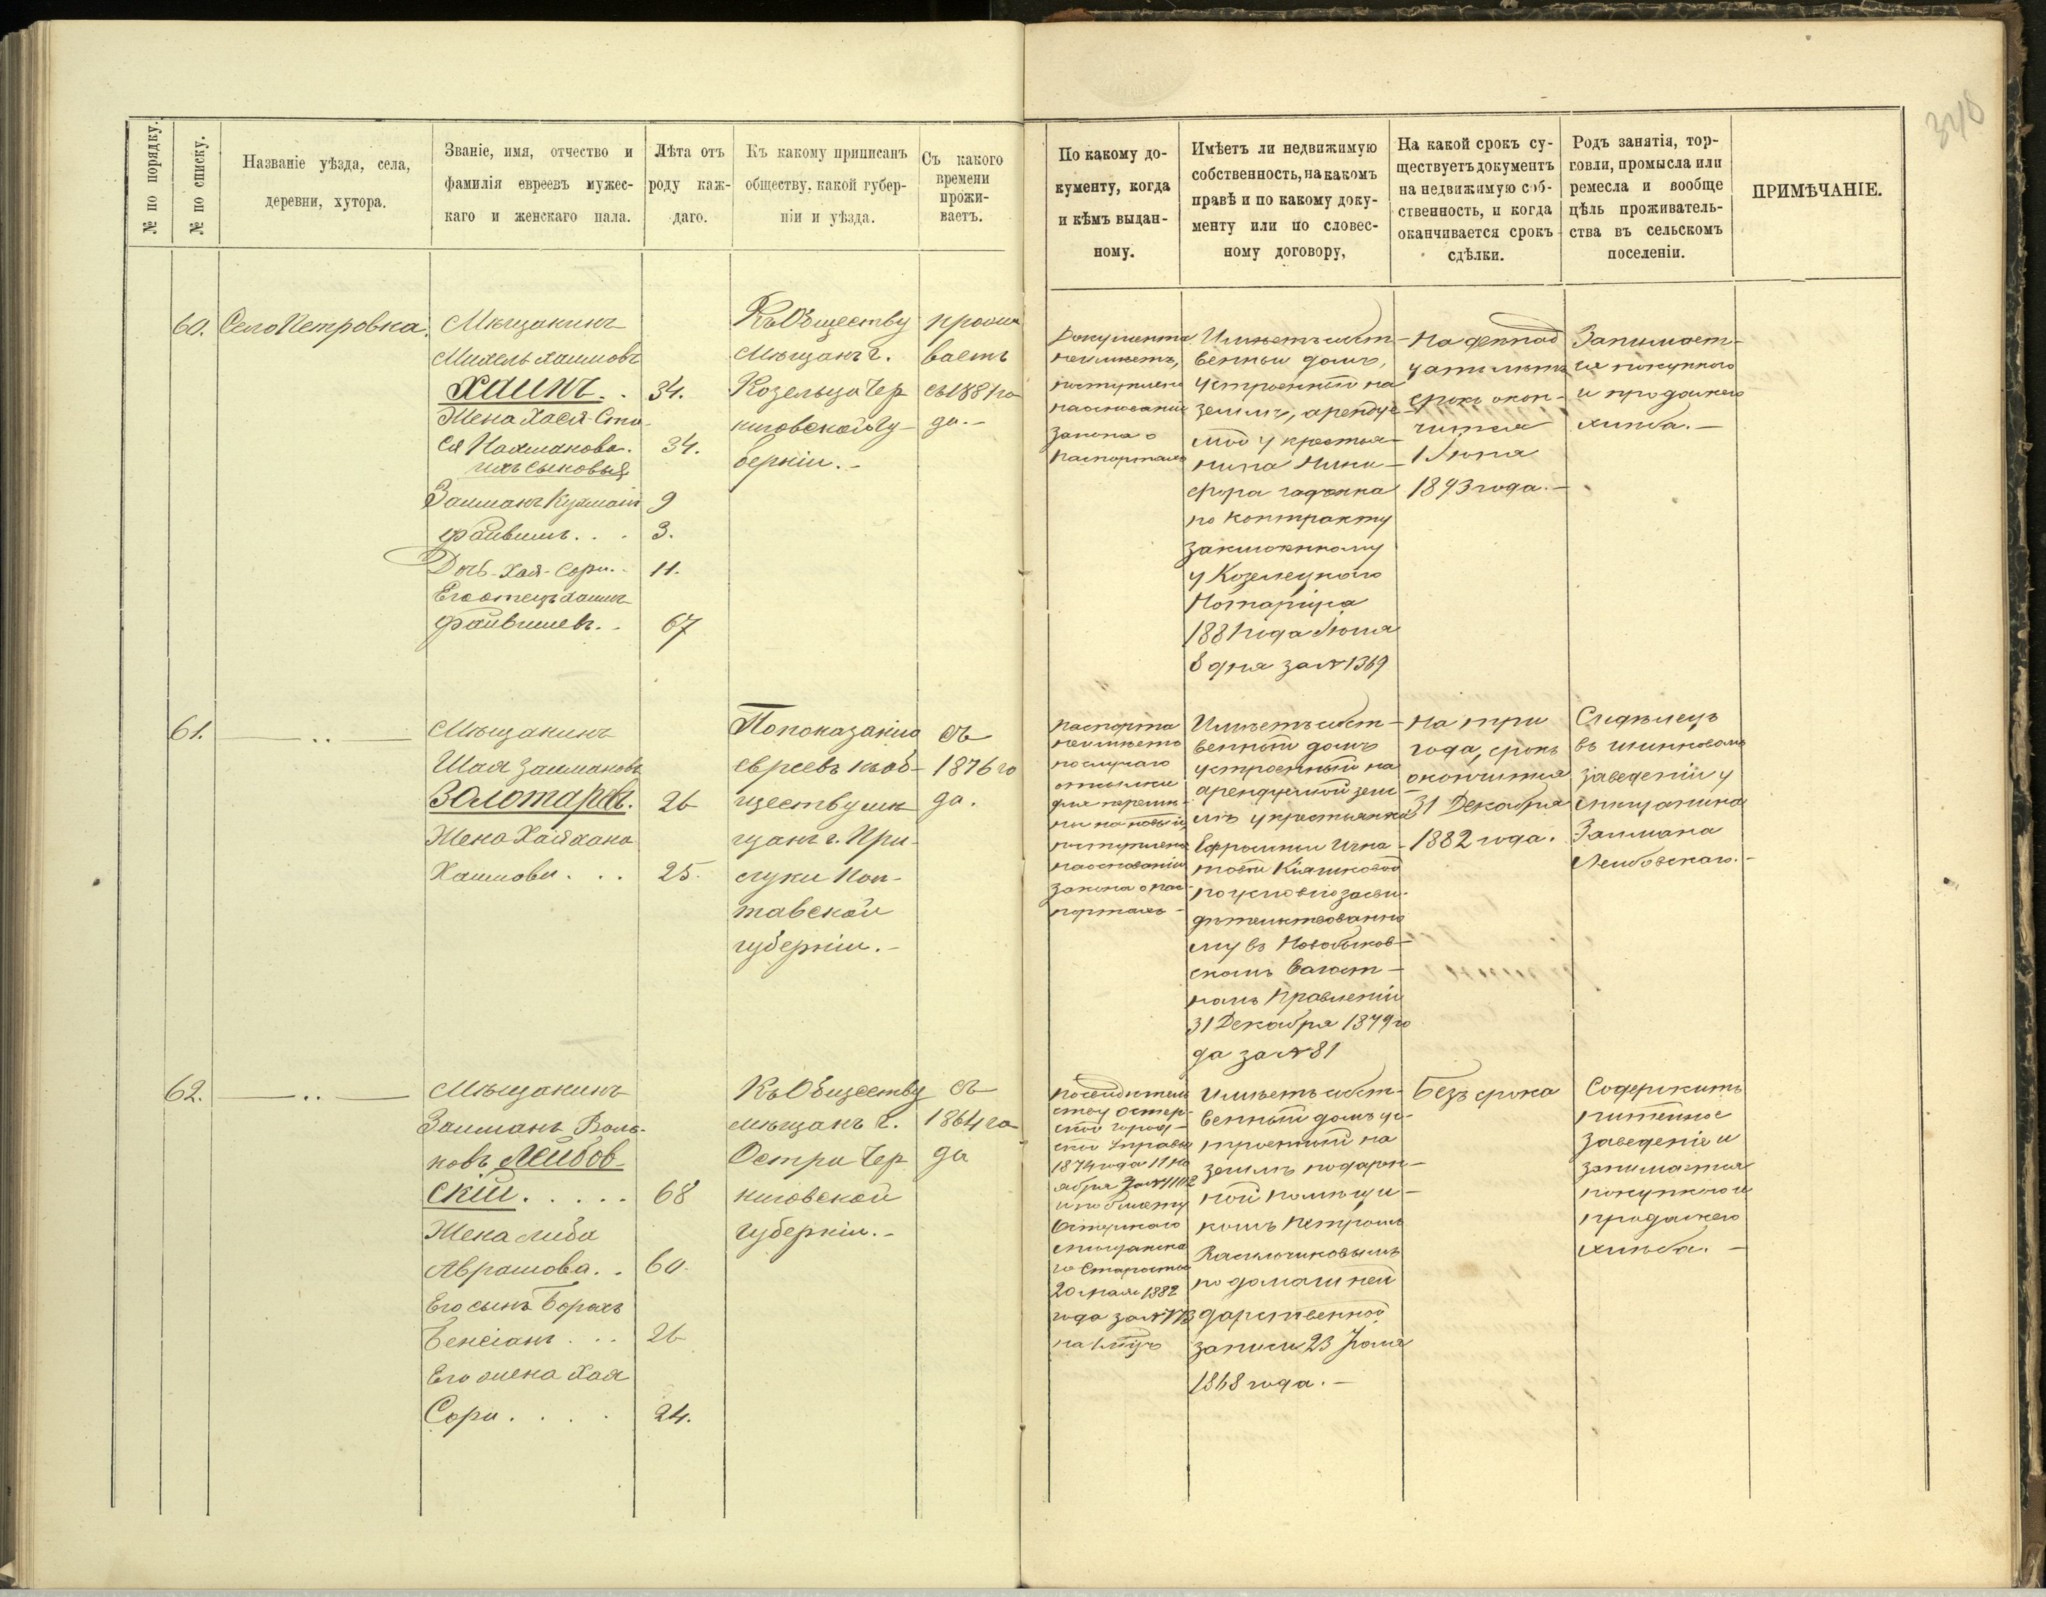 340
№ по порядку.
№ по списку.
Названіе уѣзда, села,
деревни, хутора.
Званіе, имя, отчество и
фамилія евреевъ мужес-
каго и женскаго пала.
Лѣта отъ
роду каж-
даго.
Къ какому приписанъ
обществу, какой губер-
ніи и уѣзда.
Съ какого
времени
прожи-
ваетъ.
По какому до-
кументу, когда
и кѣмъ выдан-
ному.
Имѣетъ ли недвижимую
собственность, на какомъ
правѣ и по какому доку-
менту или по словес-
ному договору,
На какой срокъ су-
ществуетъ документъ
на недвижимую соб-
ственность, и когда
оканчивается срокъ
сдѣлки.
Родъ занятія, тор-
говли, промысла или
ремесла и вообще
цѣль проживатель-
ства въ сельскомъ
поселеніи.
ПРИМѢЧАНІЕ.
60.
Село Петровка.
Мѣщанинъ
Михель Хаимовъ
Хаинъ. .
34.
Жена Хася-Ста-
ся Нахманова.
34.
ихъ сыновья
Залманъ
9
Файвишъ. . .
3.
Дочь-Хая-Сора. .
11.
Его отецъ Хаимъ
Файвишевъ. .
67
Къ Обществу
Мѣщанъ г.
Козельца Чер
ниговской Гу-
берніи. -
прожи
ваетъ
съ 1881 го
да. -
Документа
не имѣетъ,
поступлено
на основаніи
закона о
паспортахъ
Имѣетъ собст-
венный домъ,
устроенный на
землѣ, арендуе-
мой у крестья-
нина Ники-
фора
по контракту
заключенному
у Козелецкого
Нотаріуса
1881 года Іюня
8 дня за № 1369
На
цать лѣтъ
срокъ окон-
чится
1 Іюня
1893 года. -
Занимает-
ся покупкою
и продажею
хлѣба. -
61.
— .. —
Мѣщанинъ
Шая Залмановъ
Золотаревъ.
26
Жена Хая Хана
Хаимова. . .
25.
По показанію
евреевъ къ об-
ществу мѣ
щанъ г. При-
луки Пол-
тавской
губерніи. -
съ
1876 го
да.
паспорта
не имѣетъ
по случаю
отсылки
для перемѣ-
ны на новый,
поступлено
на основаніи
закона о пас-
портахъ -
Имѣетъ собст-
венный домъ
устроенный на
арендуемой зем-
лѣ у крестьянки
Ефросиньи Игна-
товой Кіяшковой
по условію засви-
дѣтельствованно
му въ Новобыков-
скомъ Волост-
номъ Правленіи
31 Декабря 1879 го
да за № 81
На три
года, срокъ
окончится
31 Декабря
1882 года.
Сидѣлецъ
въ шинковомъ
заведеніи у
мѣщанина
Залмана
Лейбовскаго. -
62.
— .. —
Мѣщанинъ
Залманъ Воль-
ковъ Лейбов-
скій. . . . .
68
Жена Либа
Аврамова. .
60.
Его сынъ Борохъ
Бенсіанъ. . .
26
Его жена Хая
Сора. . . .
24.
Къ Обществу
мѣщанъ г.
Остра Чер
ниговской
губерніи. -
съ
1864 го
да
по свидѣтель
ству Остер-
ской город-
ской Управы
1874 года 11 но
ября за № 1112
и по билету
Остерскаго
мѣщанска
го Старосты
20 мая 1882
года за №
на 1 мѣсяцъ
Имѣетъ собст-
венный домъ ус-
троенный на
землѣ подарен-
ной помѣщи-
комъ Петромъ
Васильчиковымъ
по домашней
дарственной
записи 23 Іюня
1868 года. -
Безъ срока
Содержитъ
питейное
заведеніе и
занимается
покупкою и
продажею
хлѣба. -